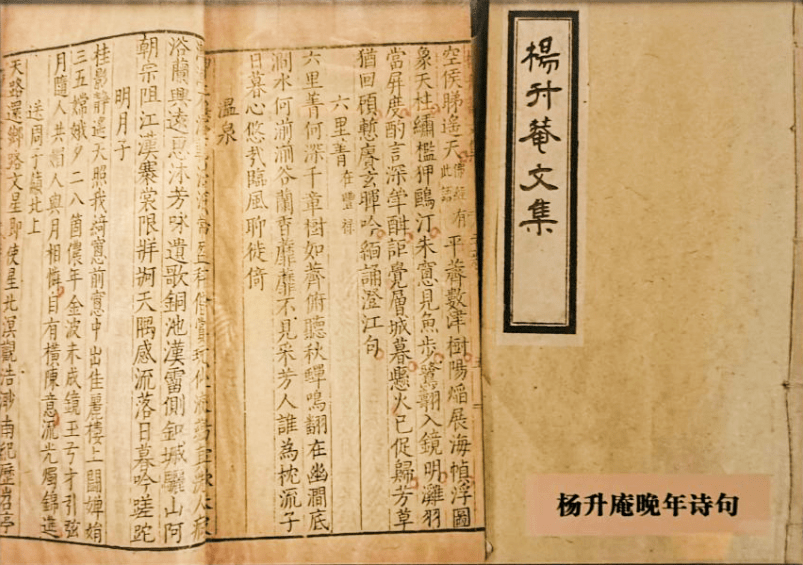 楊升菴文集
空侯睇遙天佛經有此語平薺數津樹陽焰展海幀浮圖
象天柱繡檻狎鷗汀朱窻見魚步鷺翻入鏡明灘羽
當屏度酌言深犖詎覺層城暮懸火已促歸芳草
猶回顧慙賡玄暉吟緬誦澄江句
六里菁在豐
六里菁何深千章樹如薺俯聽秋蟬鳴翻在幽澗底
澗水何湔湔谷蘭香靡靡不見采芳人誰為枕流子
日暮心悠哉臨風聊徙倚
溫泉
浴蘭興遠思沐芳咏遺歌銅池漢雷側釦城驪山阿
朝宗阻江漢褰裳限牂牁天隅感流落日暮吟蹉跎
明月子
桂影靜遙天照我綺窻前窻中出佳麗樓上鬪嬋娟
三五嫦娥夕二八箇儂年金波未成鏡玉弓才引弦
月隨人共人與月相憐目有橫陳意流光燭錦筵
送周子籲北上
天路還鄉路文星即使星北溟觀浩渺南紀歷岧亭
杨升庵晚年诗句